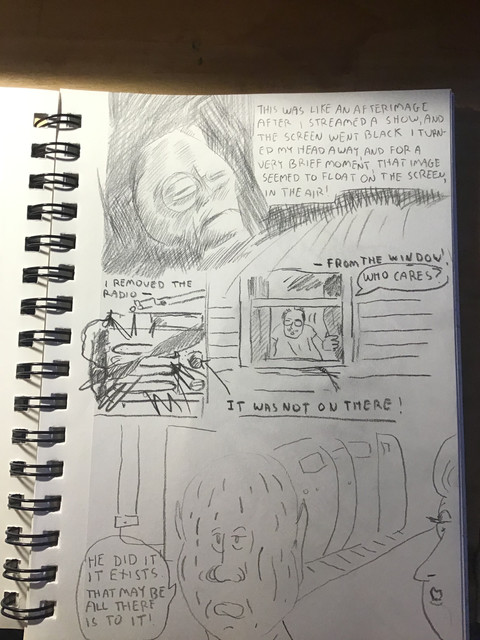 THIS WAS LIKE AN AFTERIMAGE
AFTER I STREAMED A SHOW, AND
THE SCREEN WENT BLACK I TURN-
ED MY HEAD AWAY, AND FOR A
VERY BRIEF MOMENT, THAT IMAGE
SEEMED TO FLOAT ON THE SCREEN,
IN THE AIR!
I REMOVED THE
RADIO —
— FROM THE WINDOW!
WHO CARES?
IT WAS NOT ON THERE!
HE DID IT
IT EXISTS.
THAT MAY BE
ALL THERE
IS TO IT!